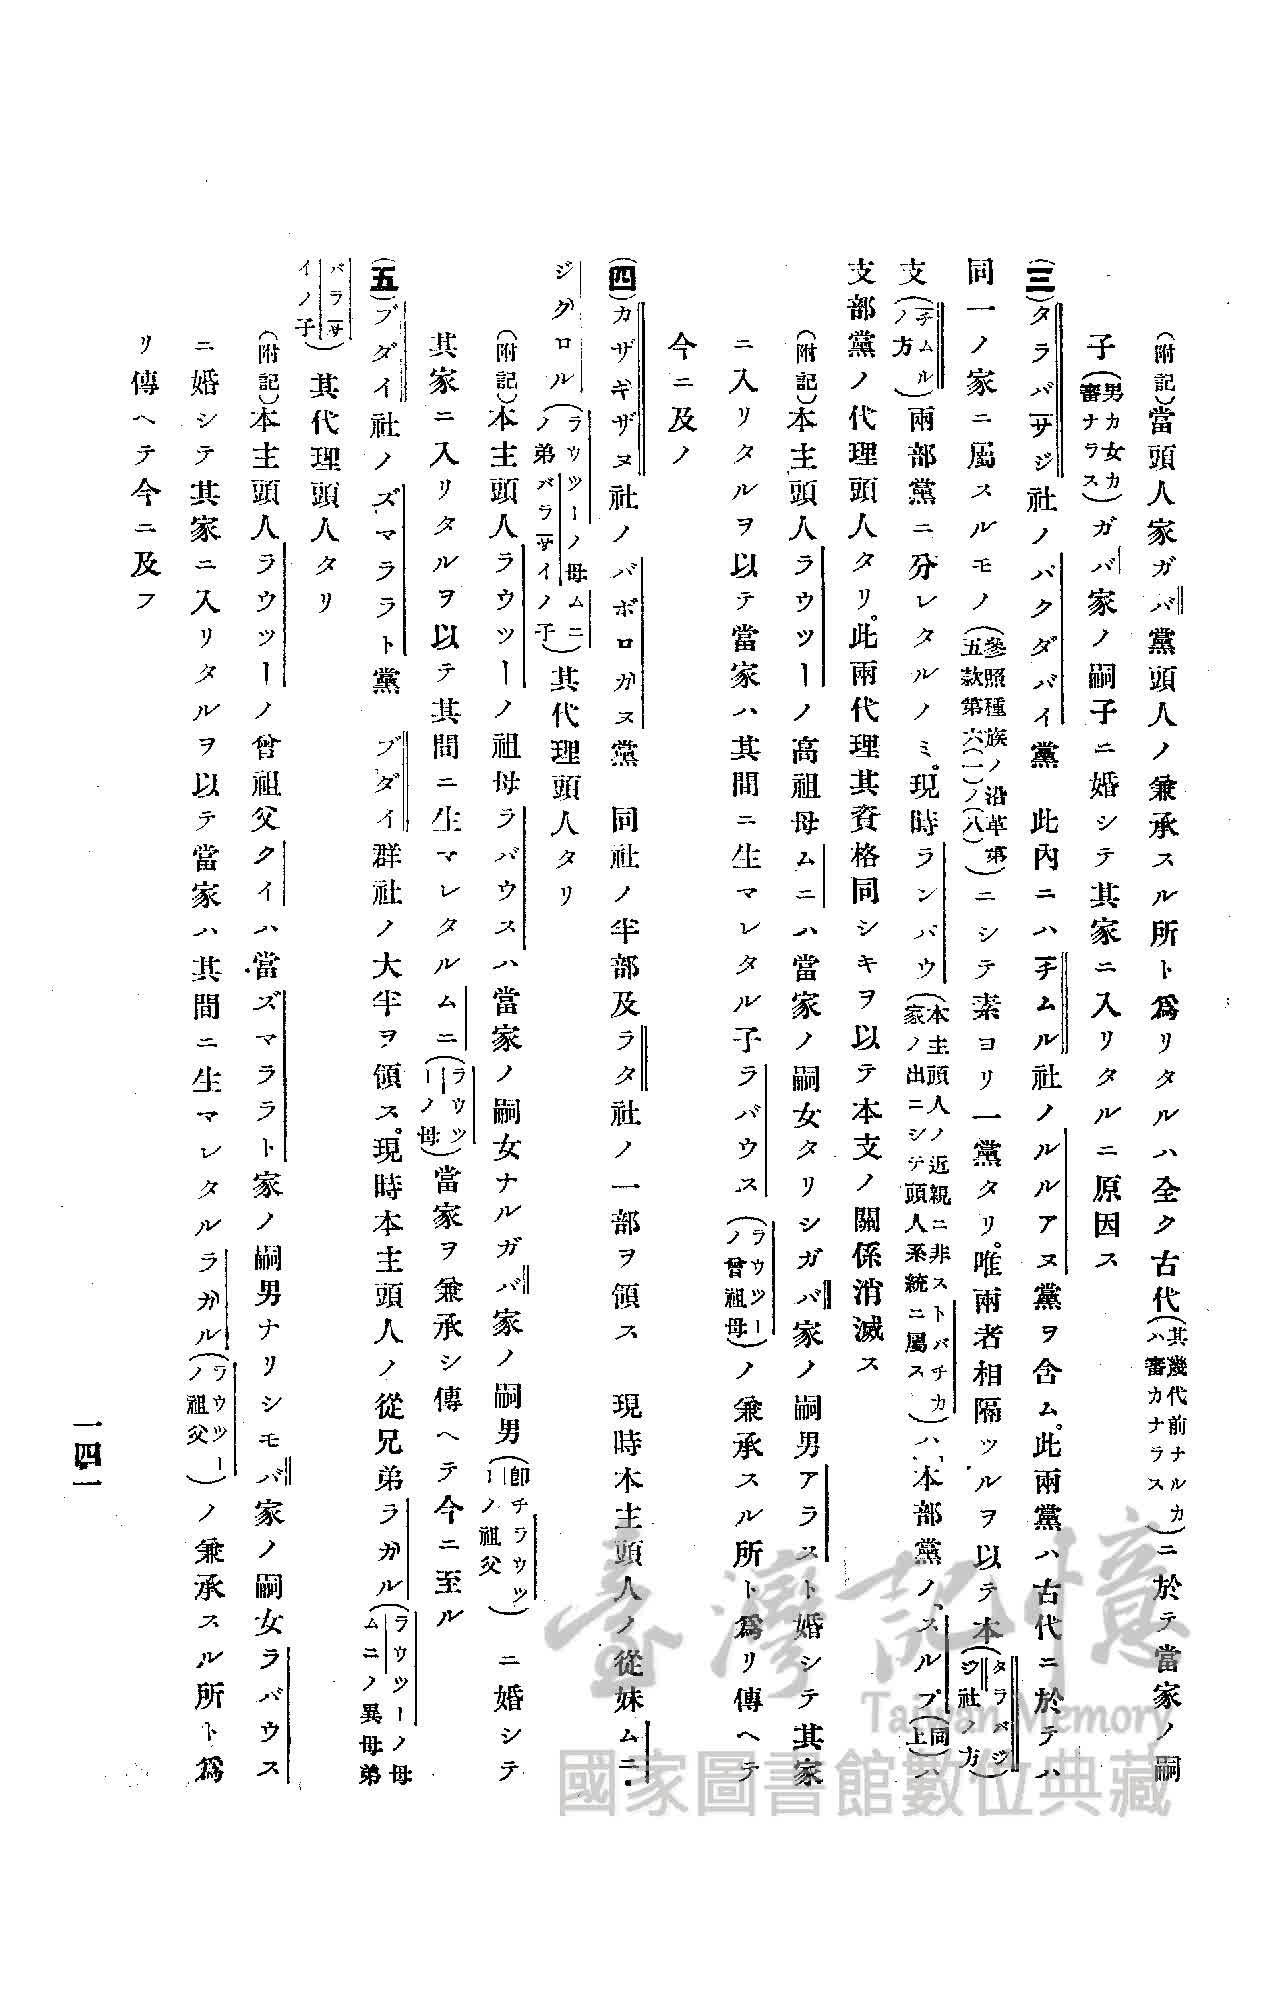 (附記)當頭人家ガバ黨頭人ノ兼承スル所ト爲リタルハ全ク古代(其幾代前ナルカハ審カナラス)ニ於テ當家ノ嗣
子(男カ女カ審ナラス)ガバ家ノ嗣子ニ婚シテ其家ニ入リタルニ原因ス
(三)タラバサジ社ノバクダバイ黨 此內ニハチムル社ノルルアヌ黨ヲ含ム。此兩黨ハ古代ニ於テハ
同一ノ家ニ屬スルモノ(參照種族ノ沿革第五款第六(一)ノ(八))ニシテ素ヨリ一黨タリ。唯兩者相隔ツルヲ以テ本(タラバジジ社ノ方)
支(チムルノ方)兩部黨ニ分レタルノミ。現時ランバウ(本主頭人ノ近親ニ非ストバチカ家ノ出ニシテ頭人系統ニ屬ス)ハ、本部黨ノ、スルプ(同上)ハ
支部黨ノ代理頭人タリ。此兩代理其資格同シキヲ以テ本支ノ關係消滅ス
(附記)本主頭人ラウツーノ高祖母ムニハ當家ノ嗣女タリシガバ家ノ嗣男アラストト婚シテ其家
ニ入リタルヲ以テ當家ハ其間ニ生マレタル子ラバウス(ラウツーノ曾祖母)ノ兼承スル所ト爲リ傳ヘテ
今ニ及ノ
(四)カザギザヌ社ノバボロガヌ黨 同社ノ半部及ラタ社ノ一部ヲ領ス 現時本主頭人ノ從妹ムニ・
ジグロル(ラウツーノ母ムニノ弟バラサイノ子)其代理頭人タリ
(附記)本主頭人ラウツーノ祖母ラバウスハ當家ノ嗣女ナルガバ家ノ嗣男(卽チラウツーノ祖父)ニ婚シテ
其家ニ入リタルヲ以テ其間ニ生マレタルムニ(ラウツーノ母)當家ヲ兼承シ傳ヘテ今ニ至ル
(五)ブダイ社ノズマララト黨 ブダイ群社ノ大半ヲ領ス。現時本主頭人ノ從兄弟ラガル(ラウツーノ母ムニノ異母弟
バラサイノ子)其代理頭人タリ
(附記)本主頭人ラウツーノ曾祖父クイハ當ズマララト家ノ嗣男ナリシモバ家ノ嗣女ラバウス
ニ婚シテ其家ニ入リタルヲ以テ當家ハ其間ニ生マレタルラガル(ラウツーノ祖父)ノ兼承スル所ト爲
リ傳ヘテ今ニ及フ
一四一
臺灣記憶
Taiwan Memory
國家圖書館數位典藏